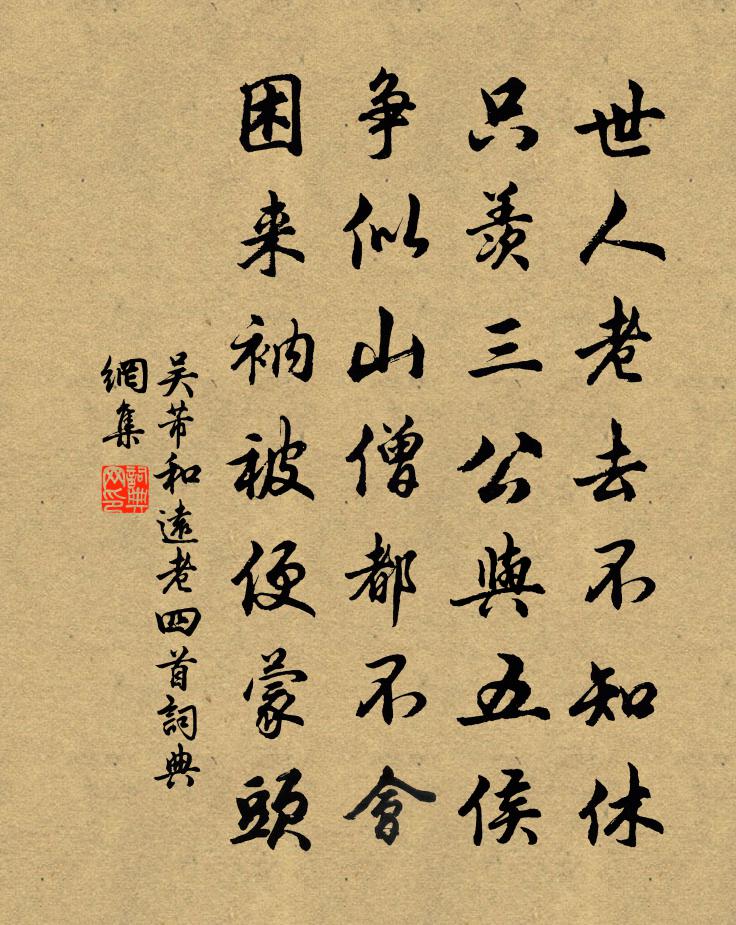 世人老去不知休
只羨三公與五侯
争似山僧都不會
困来衲被便蒙頭
吴芾和遠老四首詞典
網集
詞典
网印